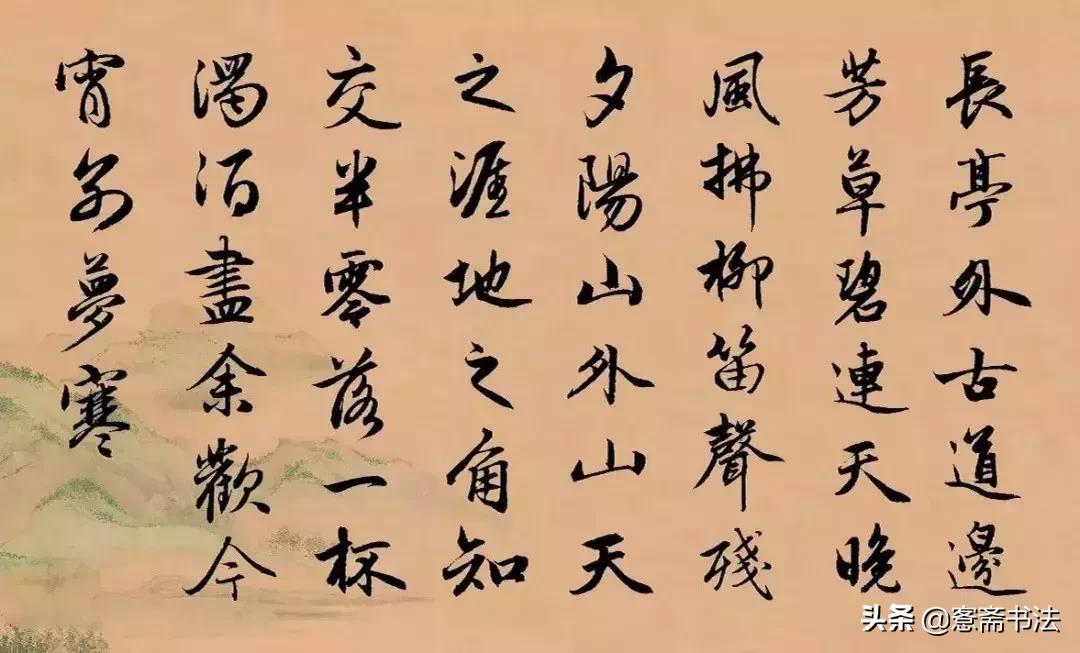 長亭外古道邊
芳草碧連天晚
風拂柳笛聲殘
夕陽山外山天
之涯地之角知
交半零落一杯
濁酒盡余歡今
宵別夢寒
头条@窓斋书法